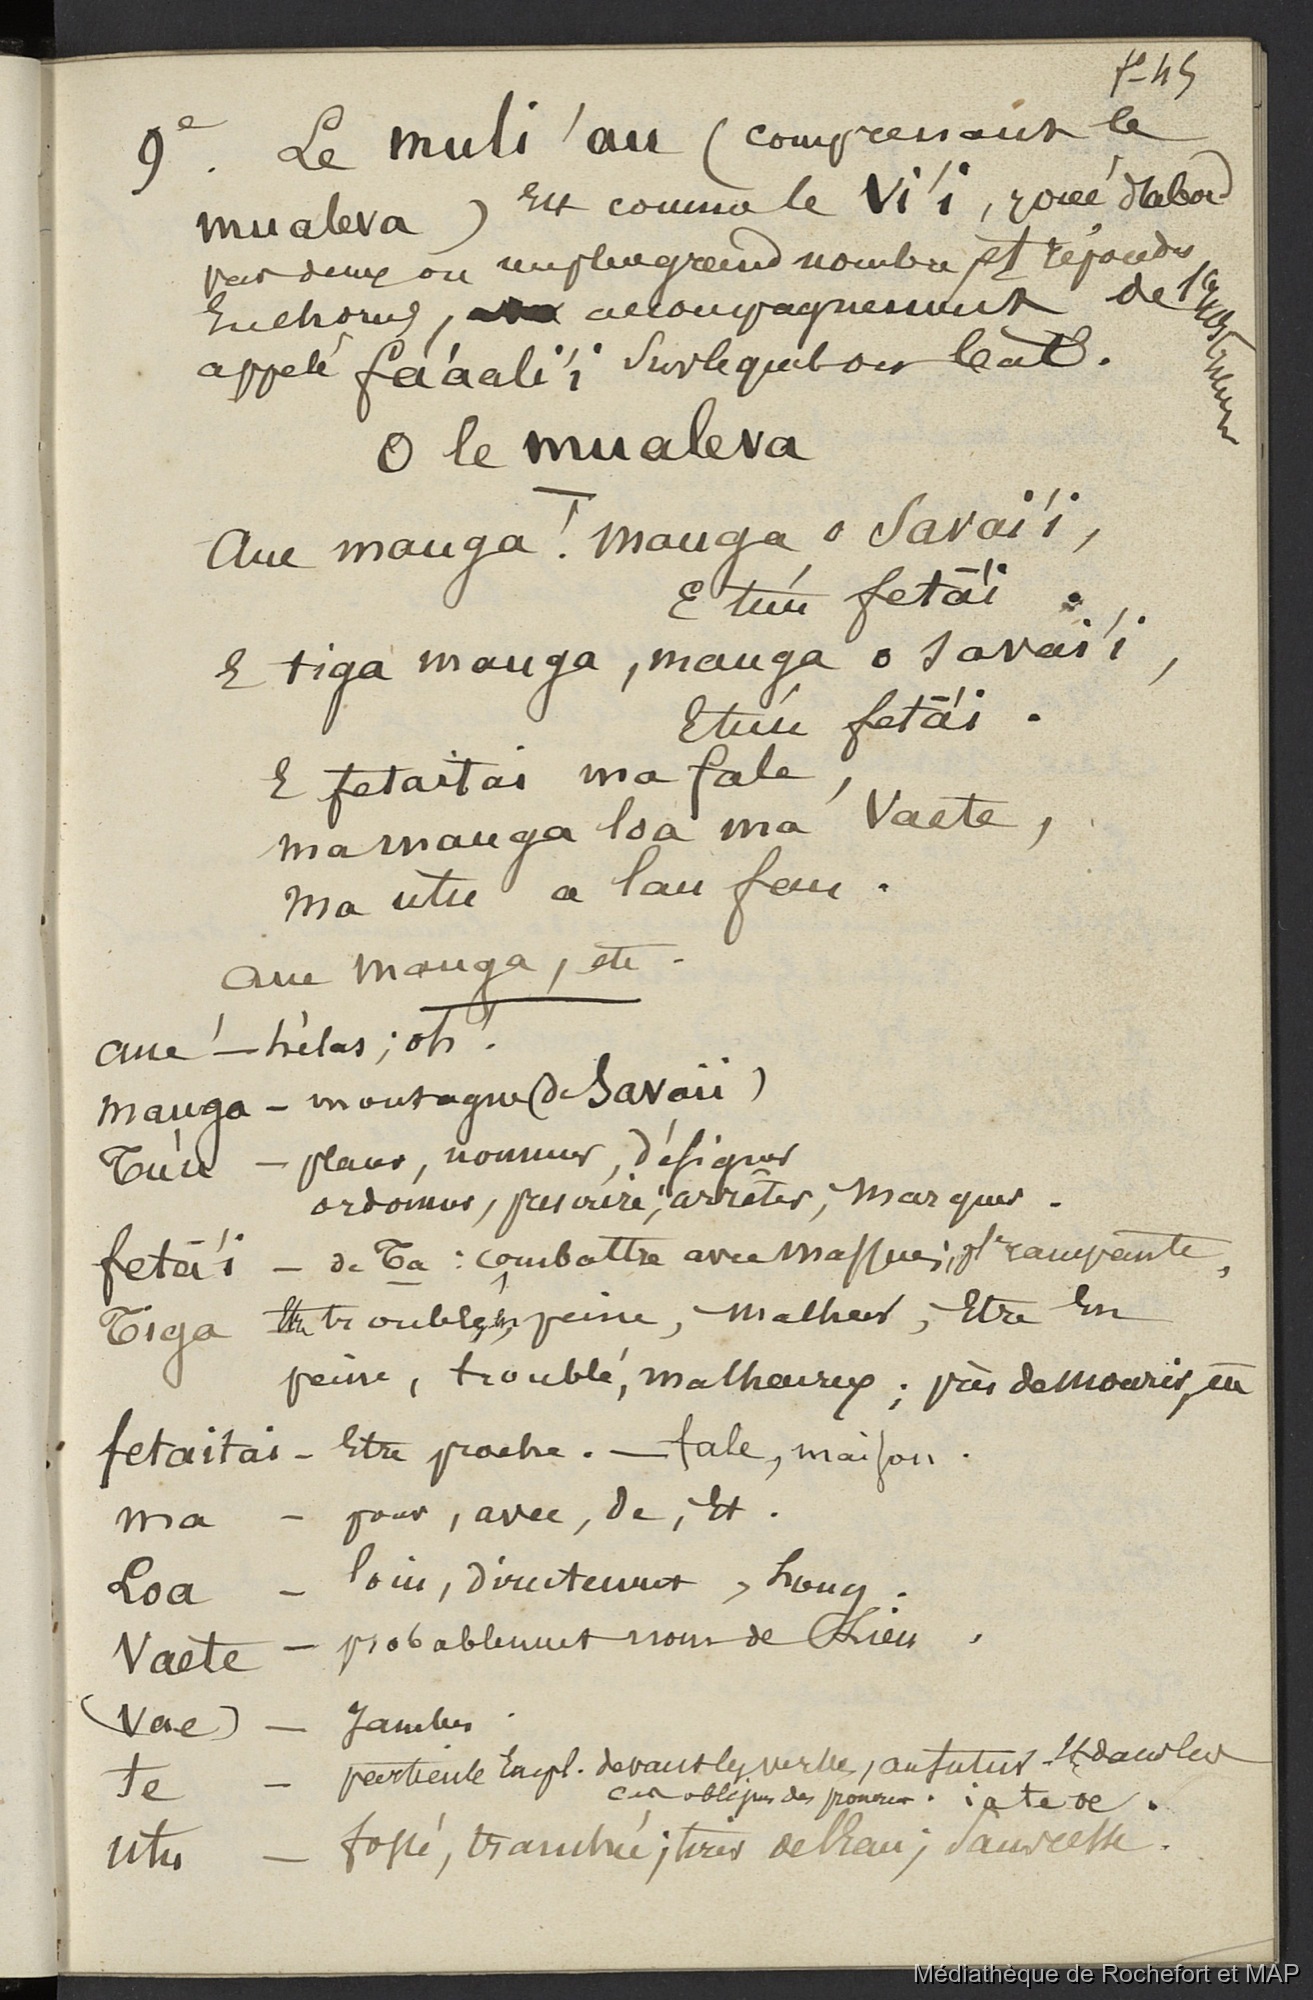 fº 45
9e. Le muli'au (comprenant le
mualeva) est comme le Vi'i, joué d'abord
par deux ou un plus grand nombre et répondu
En chorus, accompagnement de l'instrument
appelé fa'aali'i Sur lequel on bat.
O le mualeva
Aue mauga! mauga o Savai'i,
E tu'u fetā'i.
E tiga mauga, mauga o Savai'i,
E tu'u fetā'i.
E fetaitai ma fale,
ma mauga loa ma Vaete,
Ma utu a lau fau.
Aue Mauga, etc.
aue! — hélas; oh!
mauga — montagne (de Savaii)
Tu'u — placer, nommer, désigner
ordonner, prescrire; arrêter, Marquer.
fetā'i — de Ta : combattre avec Massue; pl. rampante,
Tiga trouble, peine, Malheur, Etre En
peine, troublé, malheureux; près de mourir,
fetaitai — Etre proche. — fale, maison.
ma — pour, avec, de, Et.
Loa — loin, directement, Long.
Vaete — probablement nom de Lieu.
(Vae) — Jambes.
te — particule Empl. devant les verbes, au futur Et dans les
cas obliques des pronoms. ia te oe.
utu — fossé, tranchée; tirer de l'Eau; Sauterelle.
Médiathèque de Rochefort et MAP